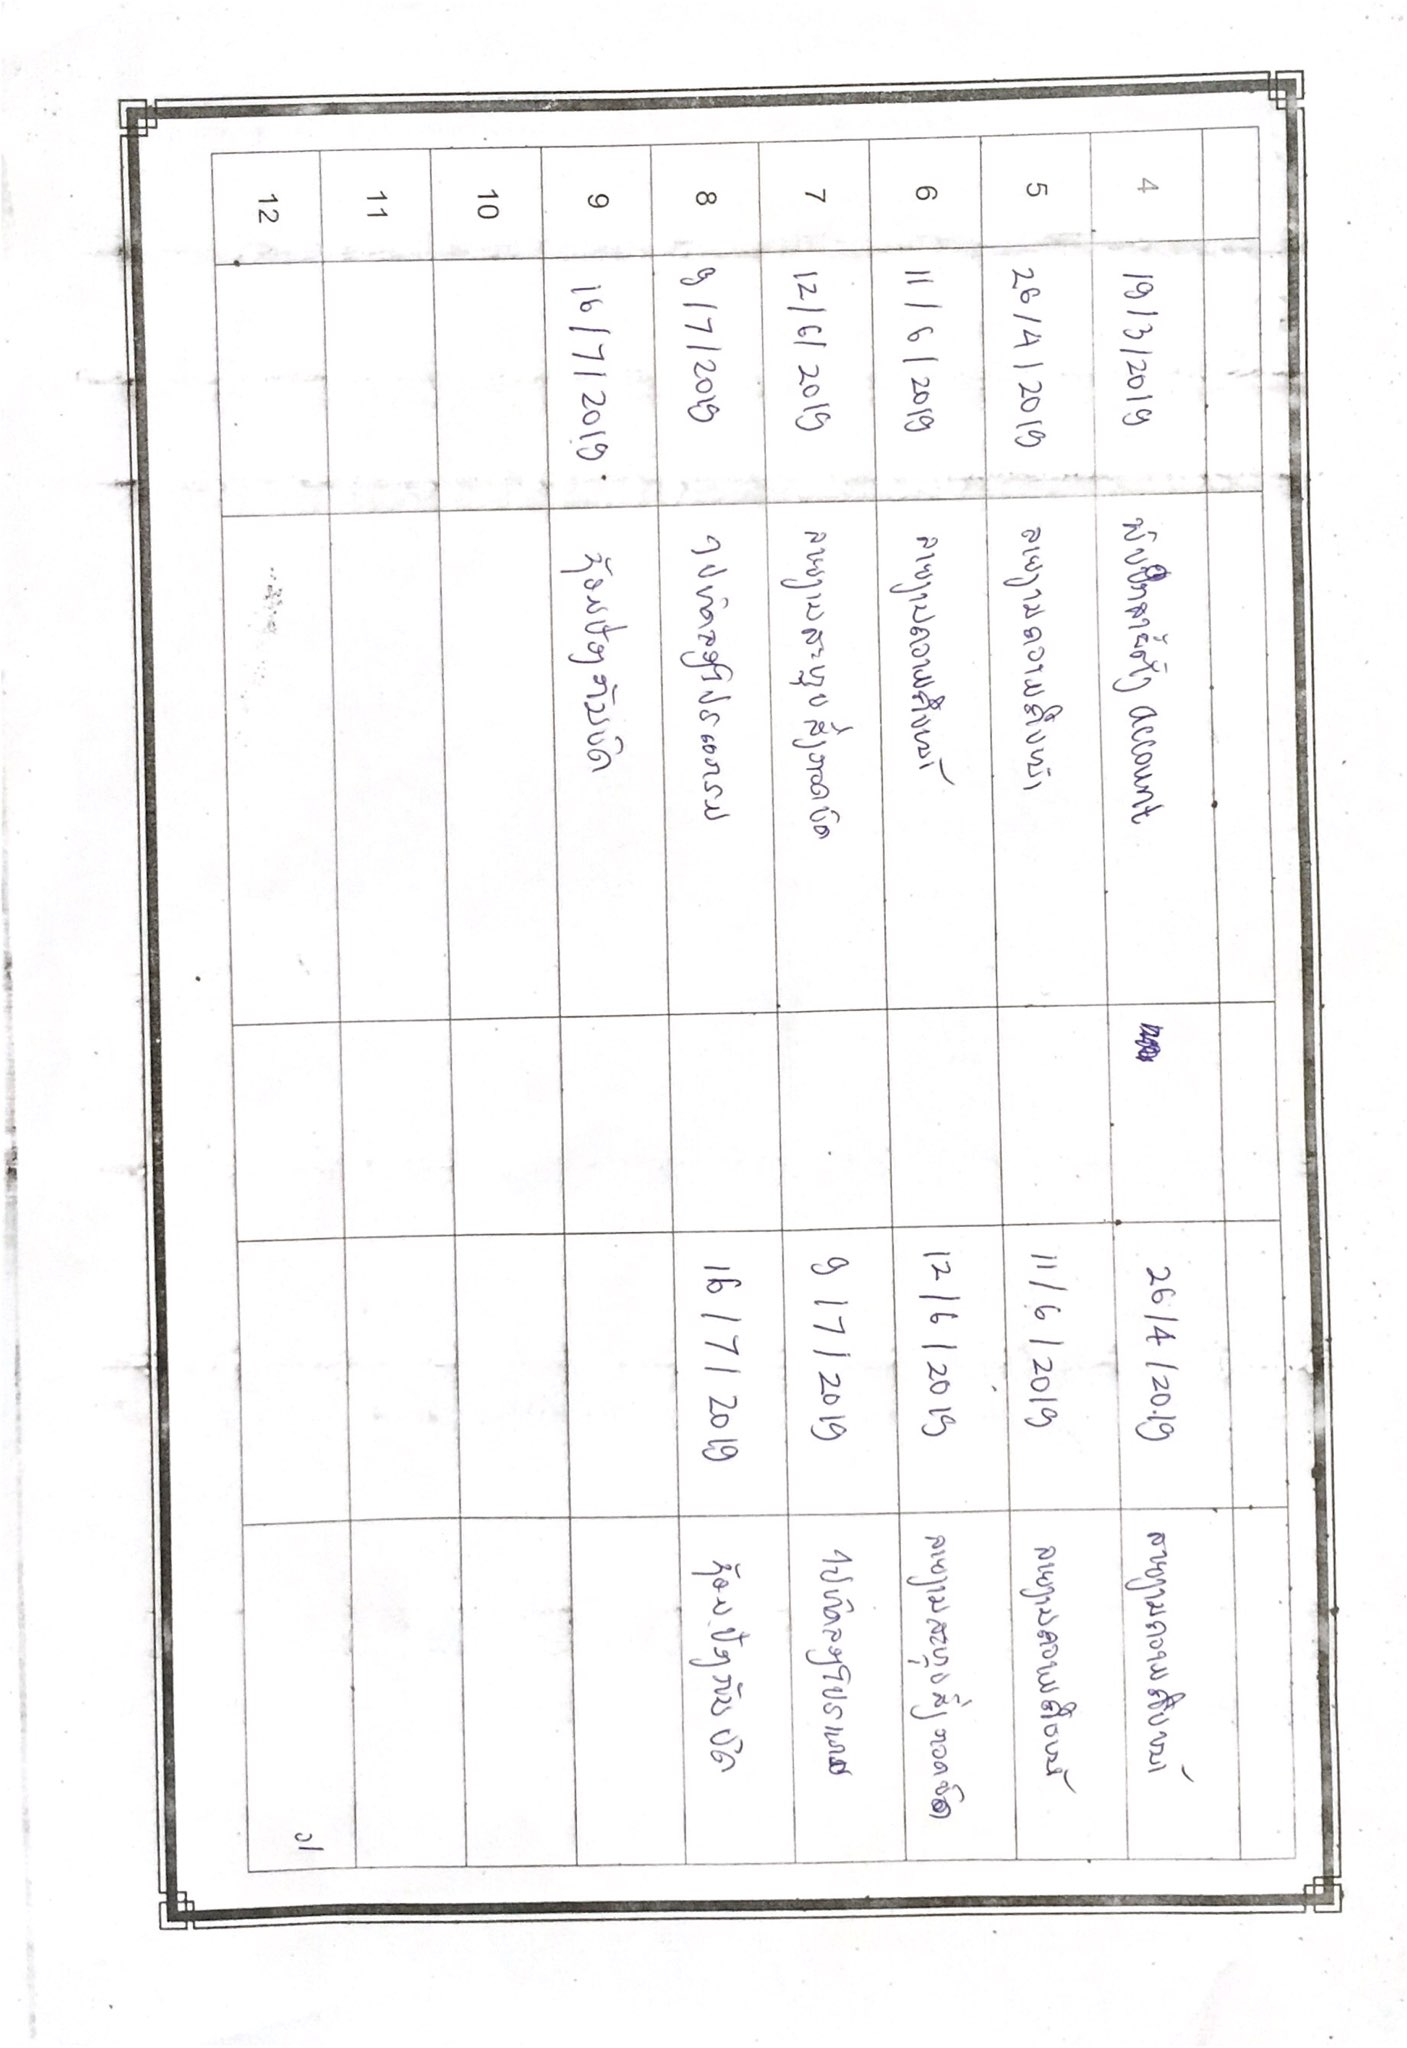 4 19/3/2019 account 26/4/2019 ລາຍງານຄວາມຄືບໜ້າ
5 26/4/2019 ລາຍງານຄວາມຄືບໜ້າ 11/6/2019 ລາຍງານຄວາມຄືບໜ້າ
6 11/6/2019 ລາຍງານຄວາມຄືບໜ້າ 12/6/2019 ລາຍງານສະຫຼຸບສົ່ງກວດບົດ
7 12/6/2019 ລາຍງານສະຫຼຸບສົ່ງກວດບົດ 9/7/2019 ໄປທົດລອງໂປຣແກຣມ
8 9/7/2019 ໄປທົດລອງໂປຣແກຣມ 16/7/2019 ຊ້ອມປ້ອງກັນບົດ
9 16/7/2019 ຊ້ອມປ້ອງກັນບົດ
10
11
12